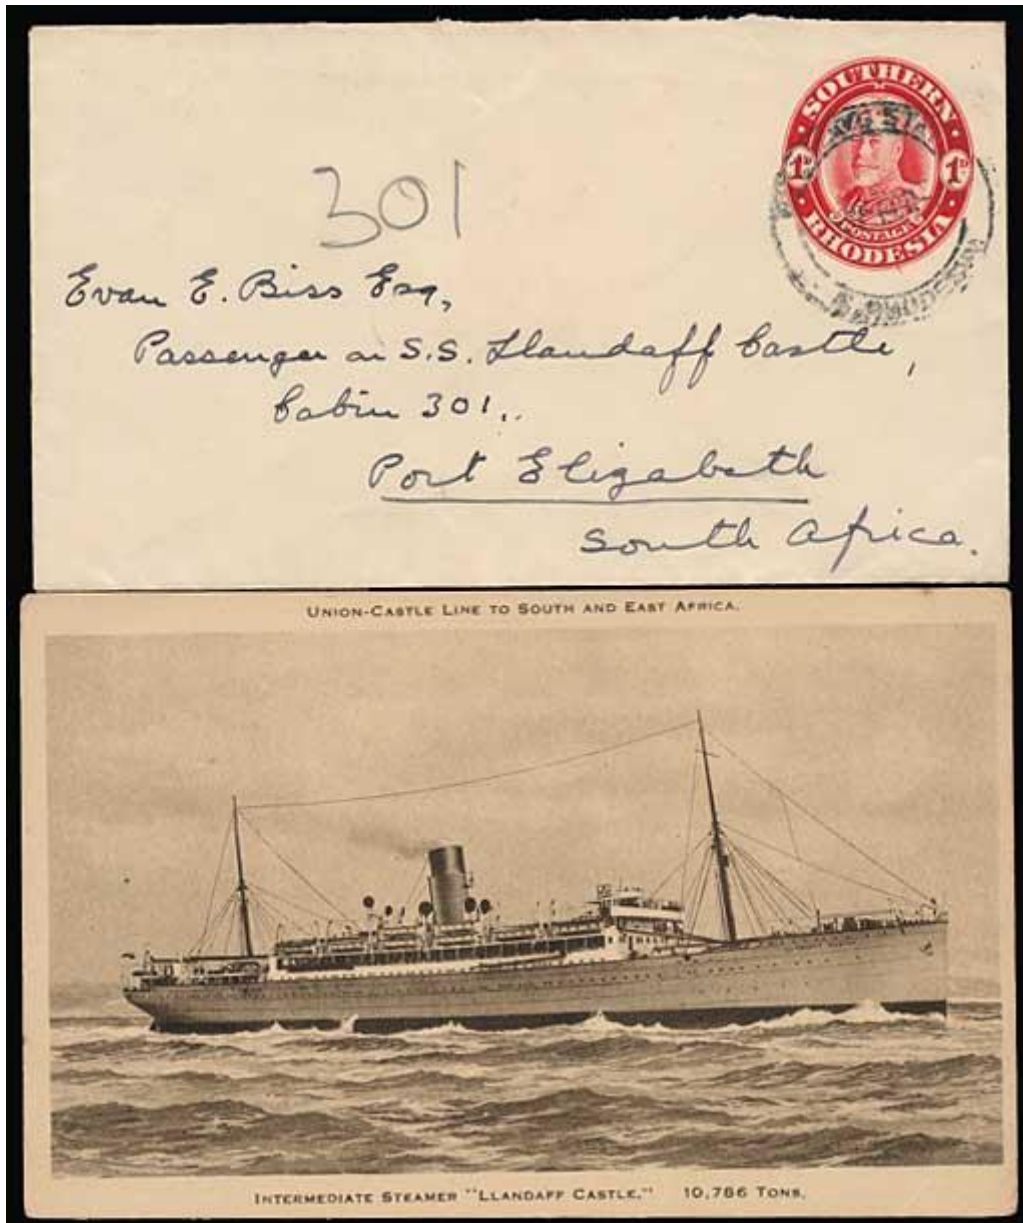 SOUTHERN
1D 1D
POSTAGE
RHODESIA
301
Evan E. Biss Esq,
Passenger on S.S. Llandaff Castle,
Cabin 301,.
Port Elizabeth
South Africa.
UNION-CASTLE LINE TO SOUTH AND EAST AFRICA.
INTERMEDIATE STEAMER "LLANDAFF CASTLE." 10,786 TONS.